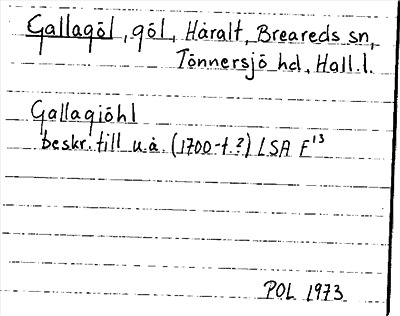 Gallagöl, göl, Håralt, Breareds sn,
Tönnersjö hd, Hall. l.
Gallagiöhl
beskr. till u.å. (1700-t.?) LSA F¹³
POL 1973